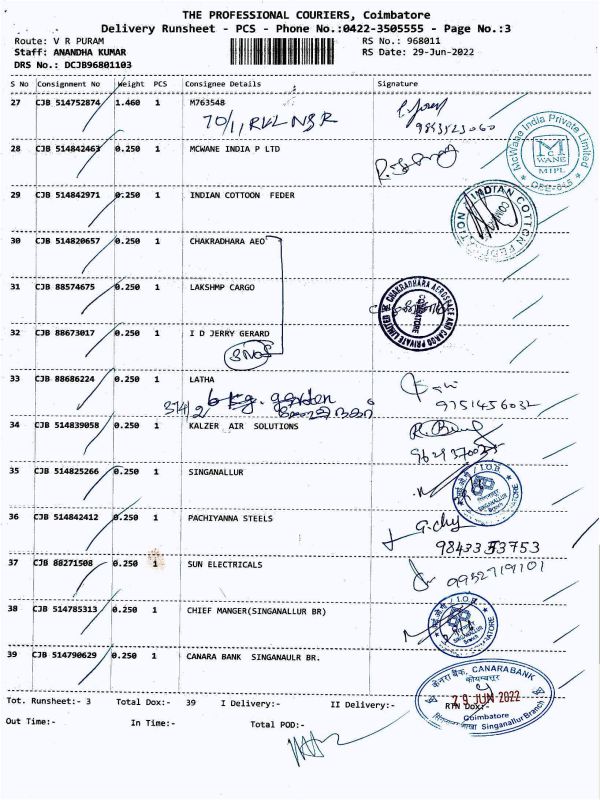 THE PROFESSIONAL COURIERS, Coimbatore
Delivery Runsheet - PCS - Phone No.:0422-3505555 - Page No.:3
Route: V R PURAM RS No.: 968011
Staff: ANANDHA KUMAR RS Date: 29-Jun-2022
DRS No.: DCJB96801103
S No Consignment No Weight PCS Consignee Details Signature
27 CJB 514752874 1.460 1 M763548
70/11, RKL NSR
9853523060
28 CJB 514842463 0.250 1 MCWANE INDIA P LTD
McWane India Private Limited
McWANE
MIPL
29 CJB 514842971 0.250 1 INDIAN COTTOON FEDER
INDIAN COTTON FEDERATION
30 CJB 514820657 0.250 1 CHAKRADHARA AEO
31 CJB 88574675 0.250 1 LAKSHMP CARGO
CHAKRADHARA AEROSPACE AND CARGO PRIVATE LIMITED
COIMBATORE
32 CJB 88673017 0.250 1 I D JERRY GERARD
3 NOS
33 CJB 88686224 0.250 1 LATHA
374/2
9751456032
34 CJB 514839058 0.250 1 KALZER AIR SOLUTIONS
35 CJB 514825266 0.250 1 SINGANALLUR
I.O.B
SINGANALLUR
Branch
36 CJB 514842412 0.250 1 PACHIYANNA STEELS
9843353753
37 CJB 88271508 0.250 1 SUN ELECTRICALS
9952719101
38 CJB 514785313 0.250 1 CHIEF MANGER(SINGANALLUR BR)
I.O.B
SINGANALLUR
Branch
39 CJB 514790629 0.250 1 CANARA BANK SINGANAULR BR.
केनरा बैंक, CANARA BANK
कोयम्बत्तूर
29 JUN 2022
Coimbatore
Singanallur Branch
Tot. Runsheet:- 3 Total Dox:- 39 I Delivery:- II Delivery:- RTN Dox:-
Out Time:- In Time:- Total POD:-